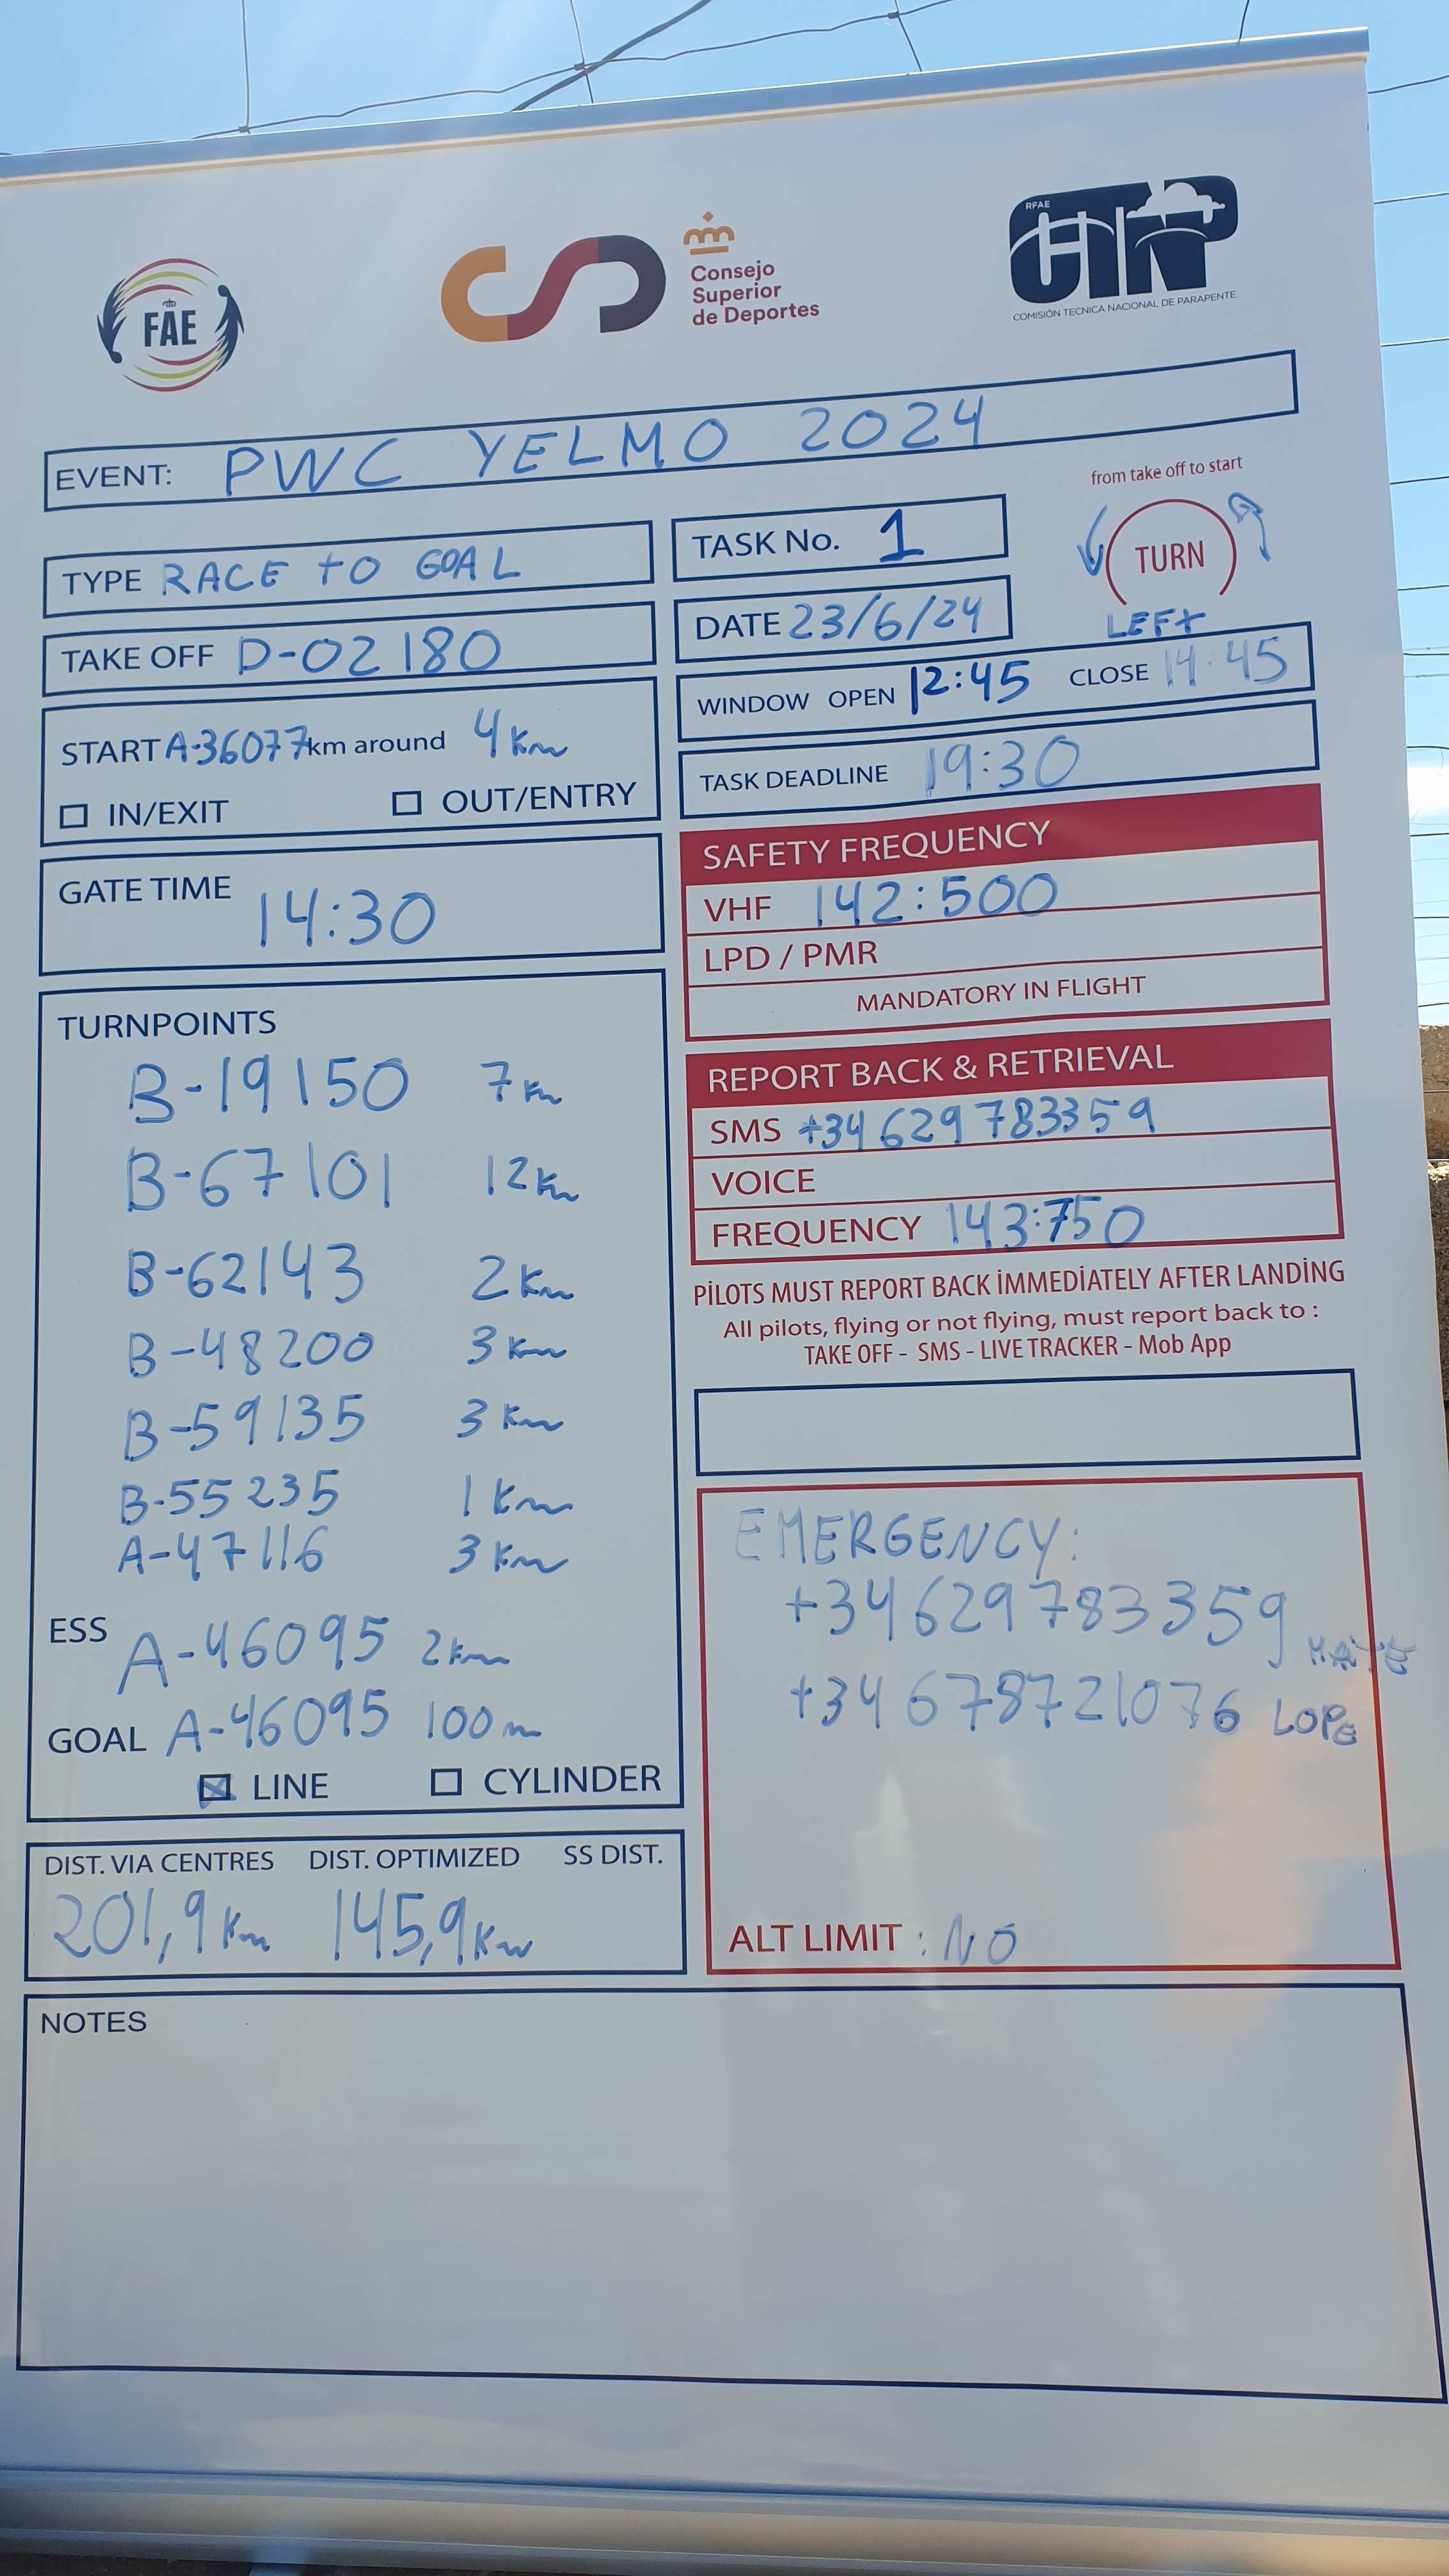 FAE
Consejo
Superior
de Deportes
RFAE
CTNP
COMISIÓN TECNICA NACIONAL DE PARAPENTE
EVENT: PWC YELMO 2024
from take off to start
TURN
LEFT
TYPE RACE TO GOAL
TASK No. 1
TAKE OFF D-02180
DATE 23/6/24
WINDOW OPEN 12:45 CLOSE 14:45
START A-36077 km around 4 Km
IN/EXIT OUT/ENTRY
TASK DEADLINE 19:30
GATE TIME 14:30
SAFETY FREQUENCY
VHF 142:500
LPD / PMR
MANDATORY IN FLIGHT
TURNPOINTS
B-19150 7 Km
B-67101 12 Km
B-62143 2 Km
B-48200 3 Km
B-59135 3 Km
B-55235 1 Km
A-47116 3 Km
ESS A-46095 2 km
GOAL A-46095 100 m
LINE CYLINDER
REPORT BACK & RETRIEVAL
SMS +34 629 783359
VOICE
FREQUENCY 143:750
PİLOTS MUST REPORT BACK İMMEDİATELY AFTER LANDİNG
All pilots, flying or not flying, must report back to :
TAKE OFF - SMS - LIVE TRACKER - Mob App
EMERGENCY:
+34 629 783359
+34 678721076 LOPE
ALT LIMIT : NO
DIST. VIA CENTRES DIST. OPTIMIZED SS DIST.
201,9 Km 145,9 Km
NOTES